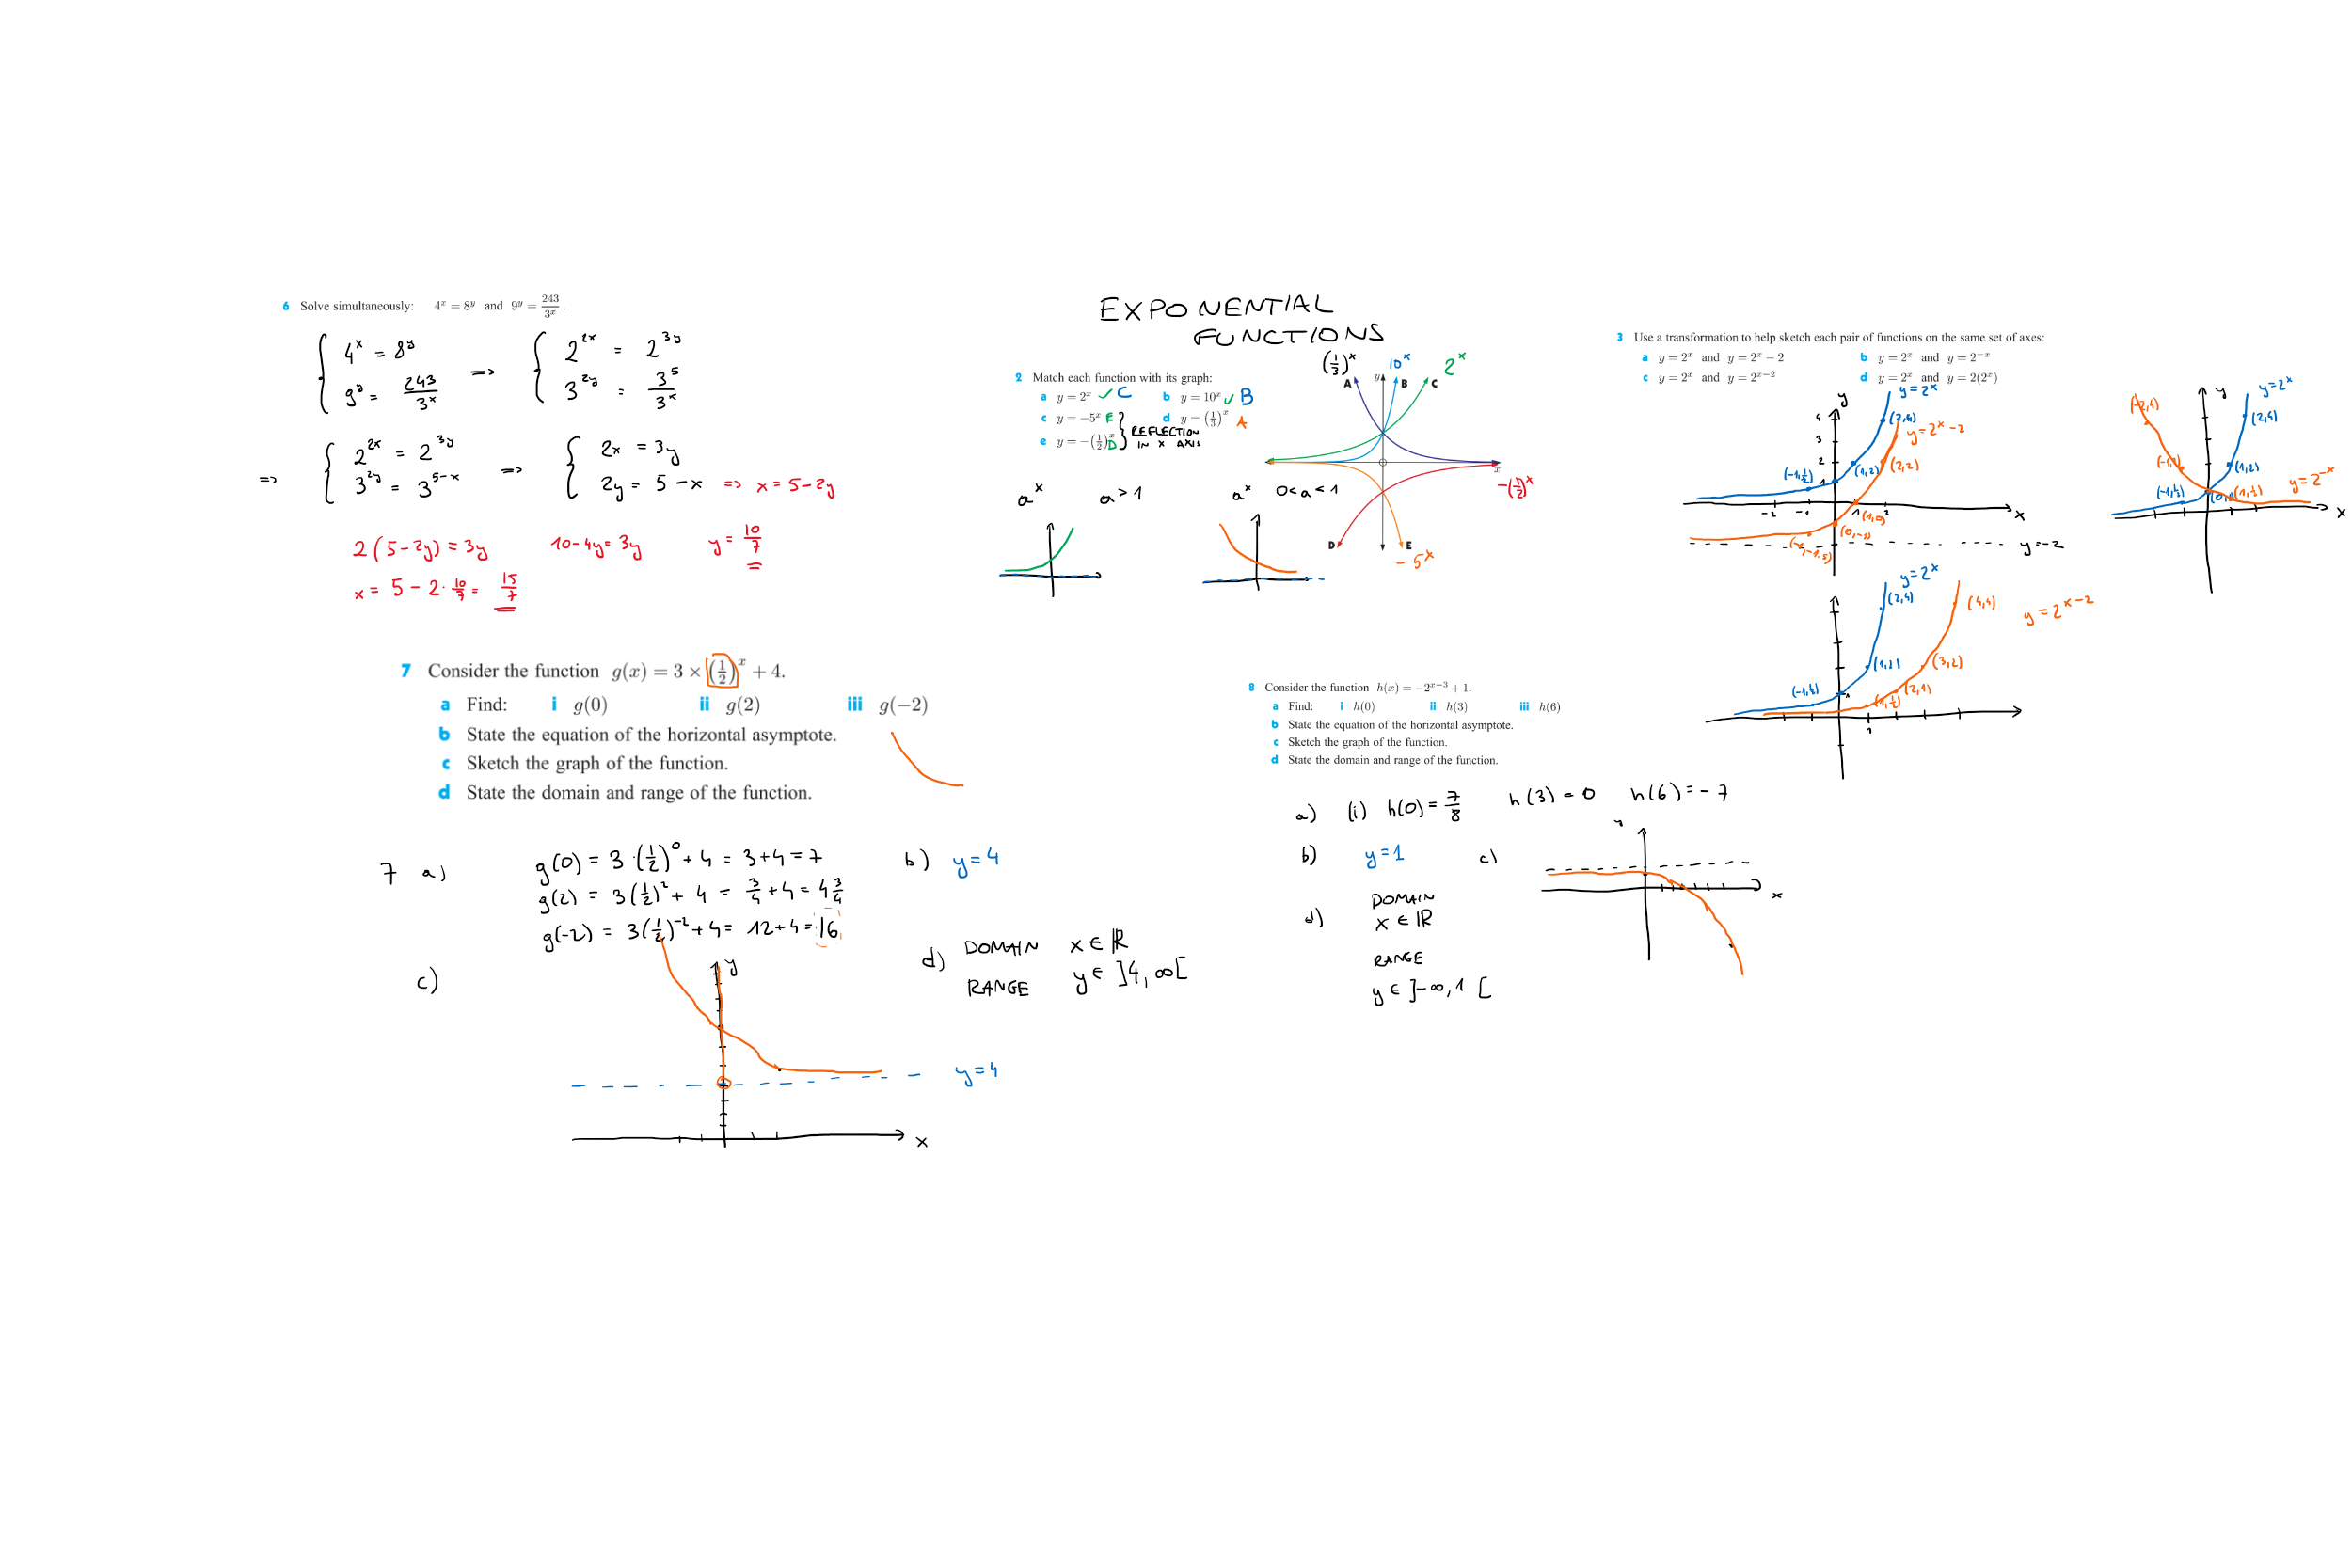 6 Solve simultaneously: 4^x = 8^y and 9^y = 243/3^x .
{ 4^x = 8^y => { 2^2x = 2^3y
9^y = 243/3^x 3^2y = 3^5/3^x
=> { 2^2x = 2^3y => { 2x = 3y
3^2y = 3^5-x 2y = 5 - x => x = 5 - 2y
2(5-2y) = 3y 10-4y = 3y y = 10/7
x = 5 - 2·10/7 = 15/7
EXPONENTIAL
FUNCTIONS
2 Match each function with its graph:
a y = 2^x ✓ C b y = 10^x ✓ B
c y = -5^x E d y = (1/3)^x A
e y = -(1/2)^x D } REFLECTION
IN X AXIS
(1/3)^x 10^x 2^x
A y B C
x
-(1/2)^x
D E
-5^x
a^x a > 1 a^x 0 < a < 1
3 Use a transformation to help sketch each pair of functions on the same set of axes:
a y = 2^x and y = 2^x - 2 b y = 2^x and y = 2^-x
c y = 2^x and y = 2^x-2 d y = 2^x and y = 2(2^x)
y y = 2^x
4 (2,4)
3 y = 2^x - 2
2 (1,2) (2,2)
(-1,1/2) 1
-2 -1 1 2 x
(1,0)
(0,-1)
(-1,-1.5)
y = -2
(-2,4) y y = 2^x
(2,4)
(-1,2) (1,2)
(-1,1/2) (0,1) (1,1/2) y = 2^-x
x
y = 2^x
(2,4) (4,4) y = 2^x-2
(1,2) (3,2)
(-1,1/2) 1 (1,1/2) (2,1)
1
7 Consider the function g(x) = 3 × (1/2)^x + 4.
a Find: i g(0) ii g(2) iii g(-2)
b State the equation of the horizontal asymptote.
c Sketch the graph of the function.
d State the domain and range of the function.
7 a) g(0) = 3·(1/2)^0 + 4 = 3+4 = 7
g(2) = 3(1/2)^2 + 4 = 3/4 + 4 = 4 3/4
g(-2) = 3(1/2)^-2 + 4 = 12+4 = 16
b) y = 4
c) y
y = 4
x
d) DOMAIN x ∈ ℝ
RANGE y ∈ ]4, ∞[
8 Consider the function h(x) = -2^x-3 + 1.
a Find: i h(0) ii h(3) iii h(6)
b State the equation of the horizontal asymptote.
c Sketch the graph of the function.
d State the domain and range of the function.
a) (i) h(0) = 7/8 h(3) = 0 h(6) = -7
b) y = 1 c)
y
x
d) DOMAIN
x ∈ ℝ
RANGE
y ∈ ]-∞, 1 [